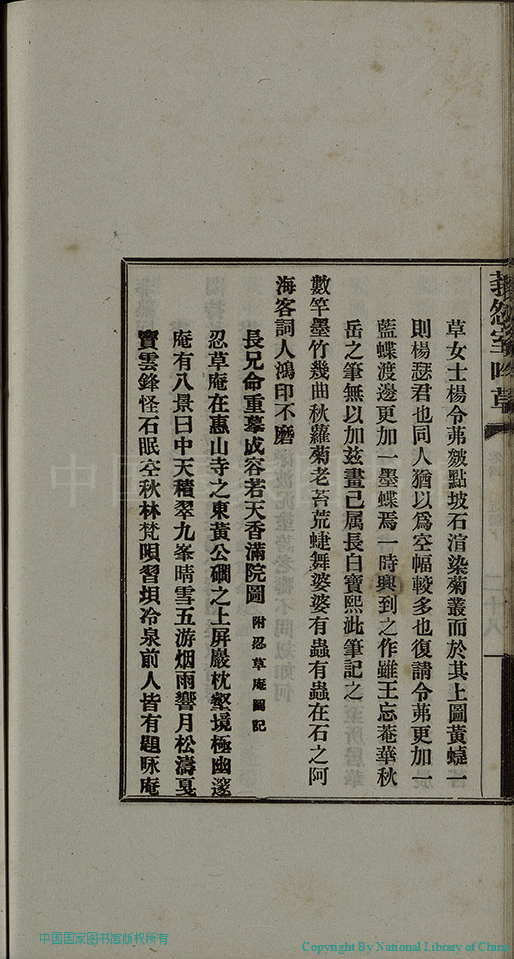 草女士楊令茀皴點坡石渲染菊叢而於其上圖黃蟯一
則楊瑟君也同人猶以爲空幅較多也復請令茀更加一
藍蝶渡邊更加一墨蝶焉一時興到之作雖王忘菴華秋
岳之筆無以加兹畫已属長白寶熙此筆記之
數竿墨竹幾曲秋蘿菊老苔荒蜨舞婆婆有蟲有蟲在石之阿
海客詞人鴻印不磨
長兄命重摹成容若天香滿院圖 附忍草庵圖記
忍草庵在惠山寺之東黃公磵之上屏巖枕壑境極幽邃
庵有八景曰中天積翠九峯晴雪五游烟雨響月松濤戛
寶雲鋒怪石眠空秋林梵唄習垻冷泉前人皆有題咏庵
室吟草
二十八
中国国家图书馆版权所有
Copyright By National Library of China